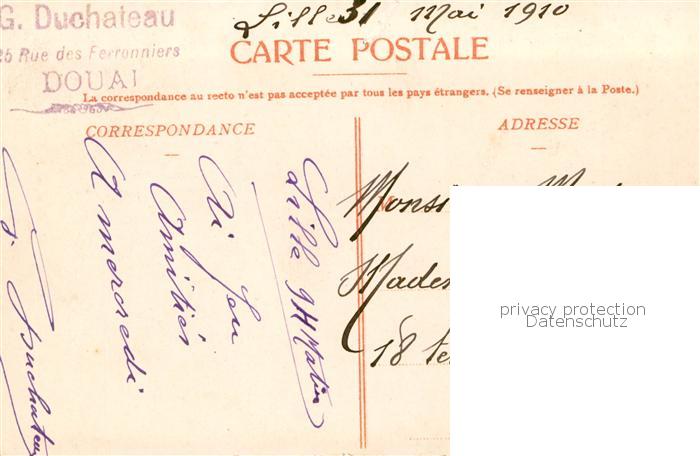 G. Duchateau
25 Rue des Ferronniers
DOUAI
Lille 31 Mai 1910
CARTE POSTALE
La correspondance au recto n'est pas acceptée par tous les pays étrangers. (Se renseigner à la Poste.)
CORRESPONDANCE
ADRESSE
Lille 9H Matin
Amitiés
A mercredi
G. Duchateau
Monsi
Mades
18
privacy protection
Datenschutz